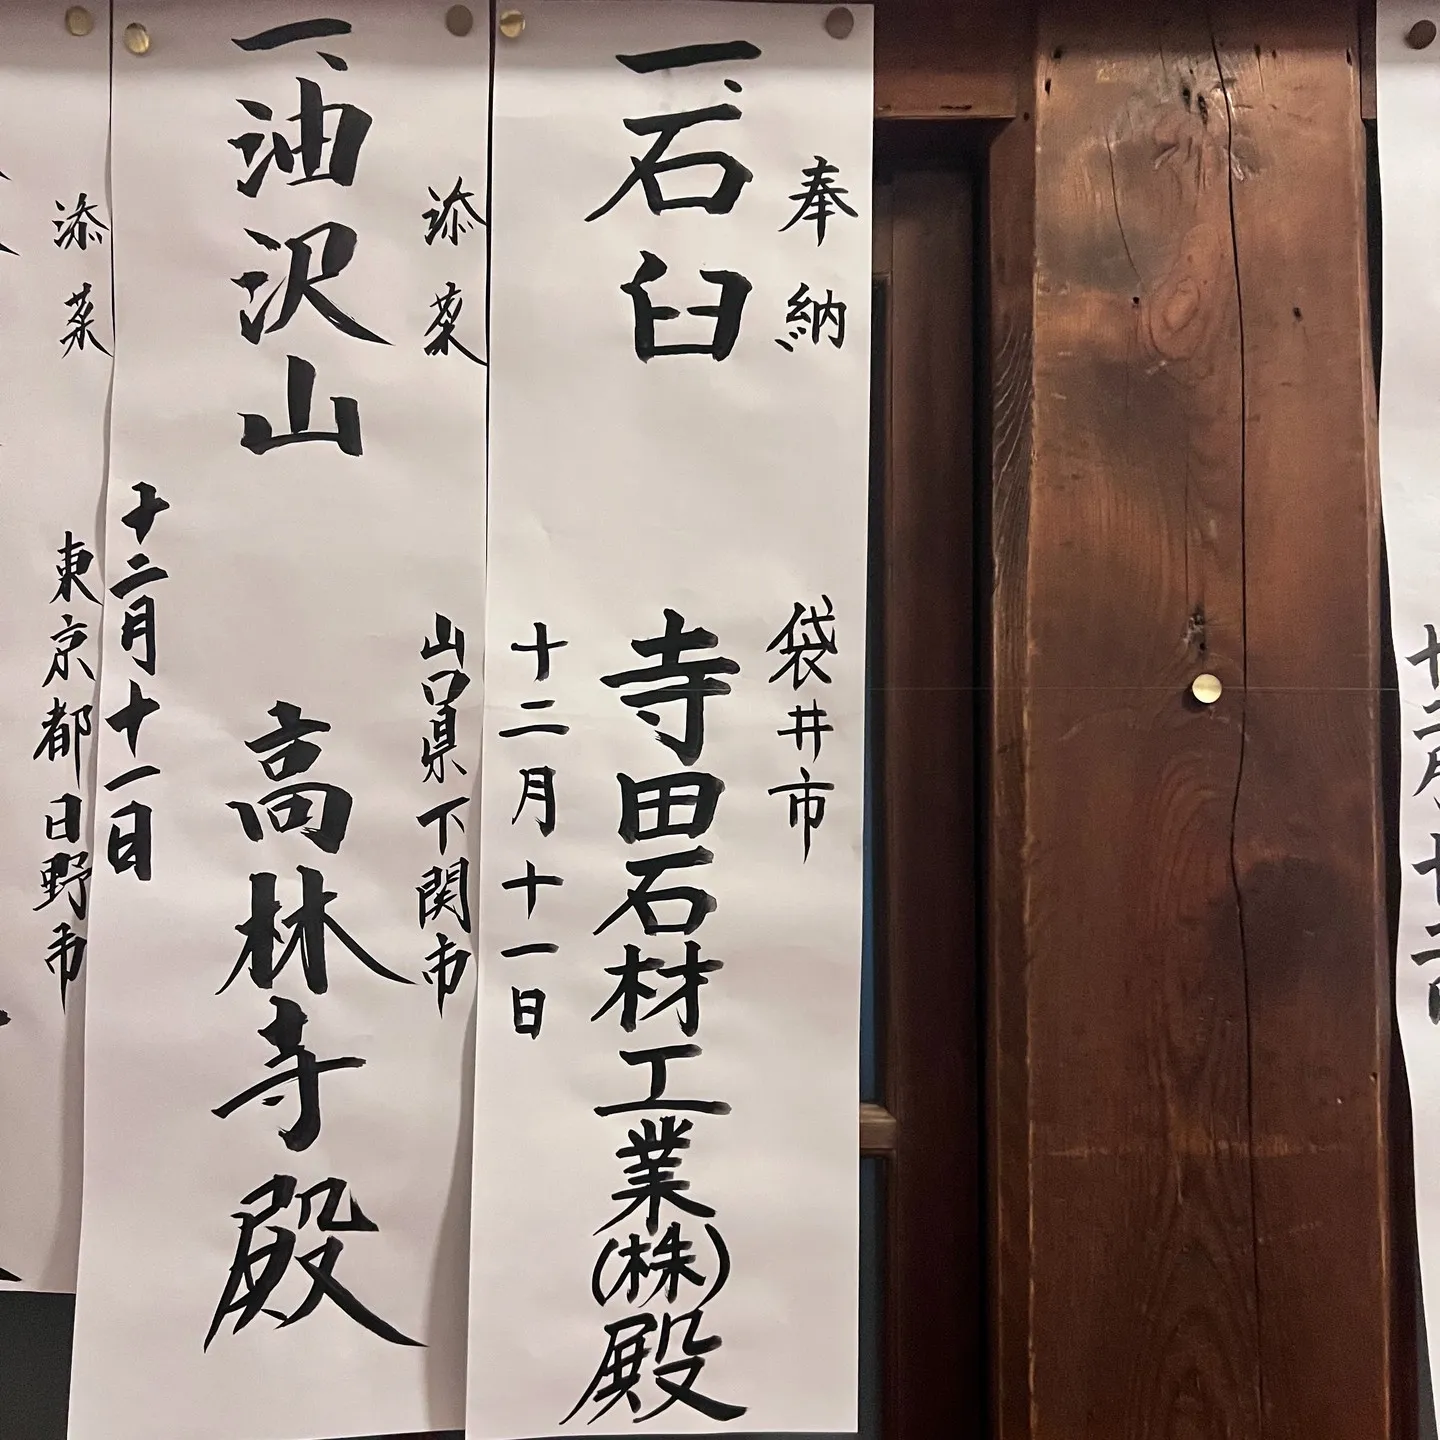 奉納 袋井市
一、石臼 寺田石材工業(株)殿
十二月十一日
添菜 山口県下関市
一、油沢山 高林寺殿
十二月十一日
添菜 東京都日野市